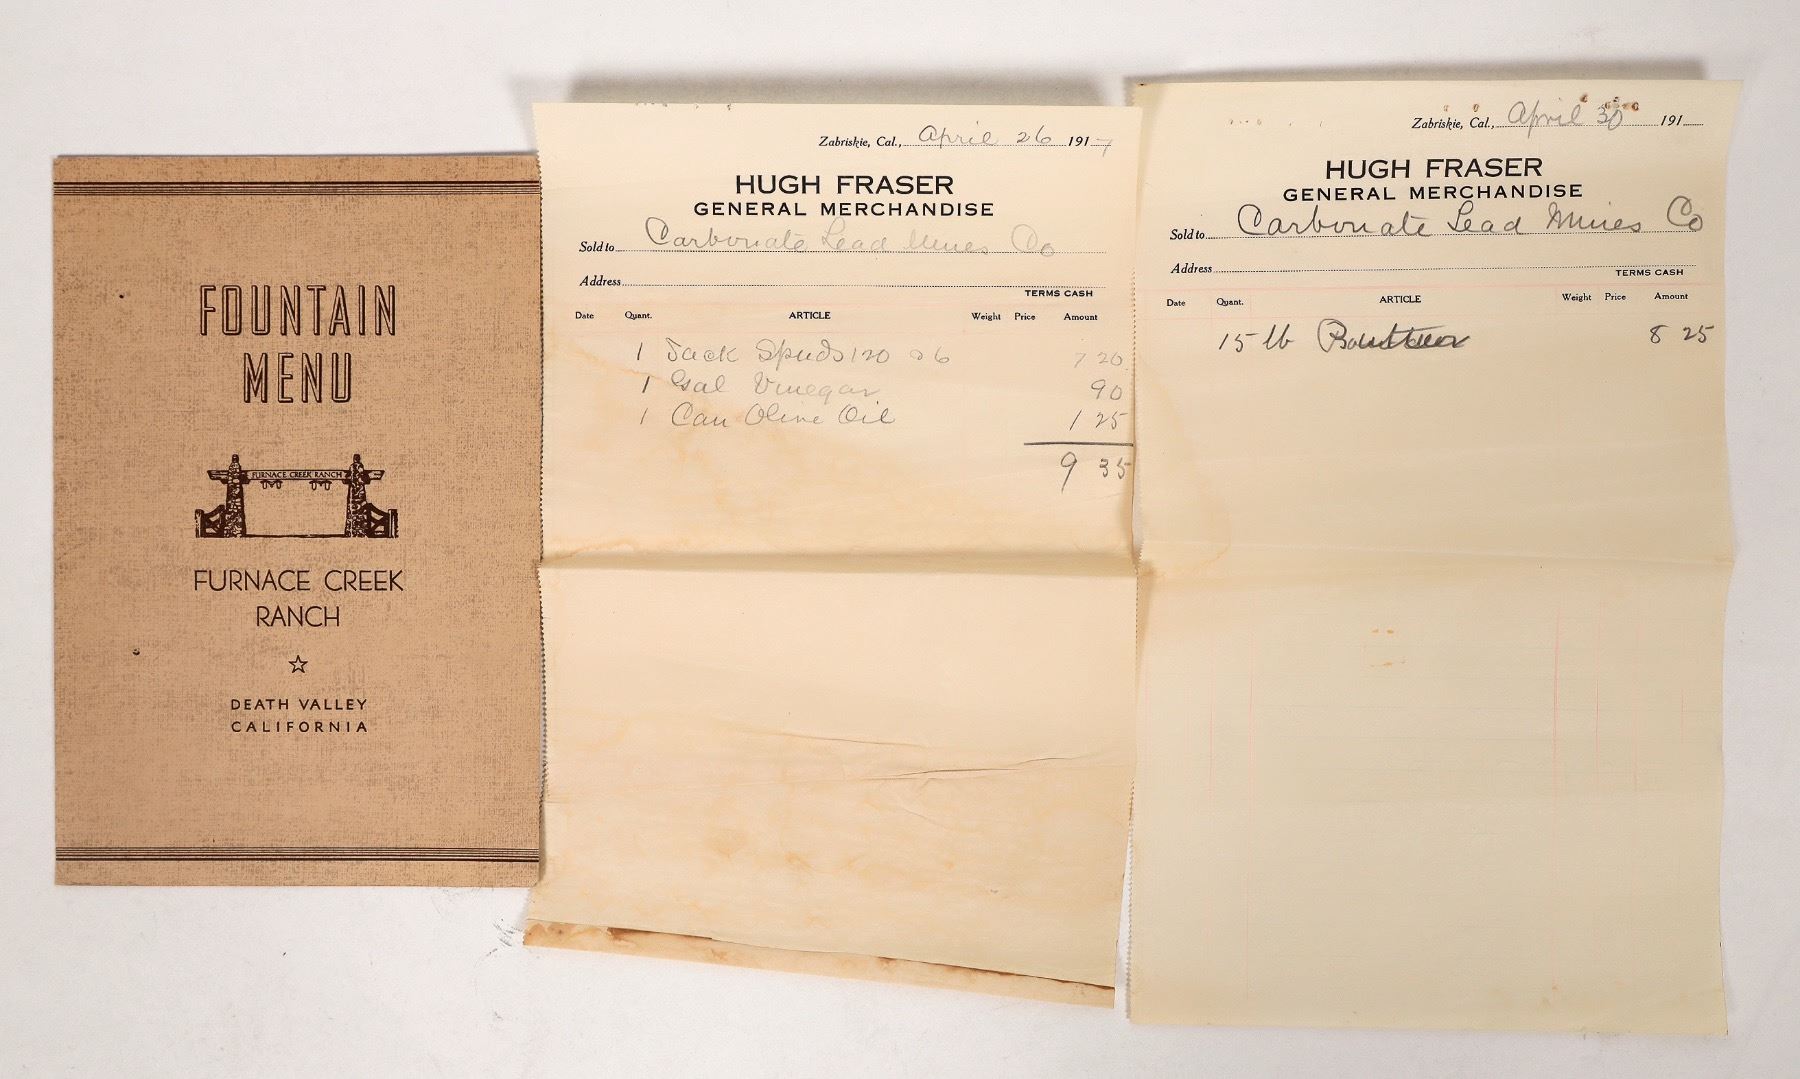 FOUNTAIN
MENU
FURNACE CREEK RANCH
FURNACE CREEK
RANCH
☆
DEATH VALLEY
CALIFORNIA
Zabriskie, Cal., April 26 1917
HUGH FRASER
GENERAL MERCHANDISE
Sold to Carbonate Lead Mines Co
Address
TERMS CASH
Date Quant. ARTICLE Weight Price Amount
1 Sack Spuds 120 @ 6 7 20
1 Gal Vinegar 90
1 Can Olive Oil 1 25
9 35
Zabriskie, Cal., April 30 191
HUGH FRASER
GENERAL MERCHANDISE
Sold to Carbonate Lead Mines Co
Address
TERMS CASH
Date Quant. ARTICLE Weight Price Amount
15 lb 8 25